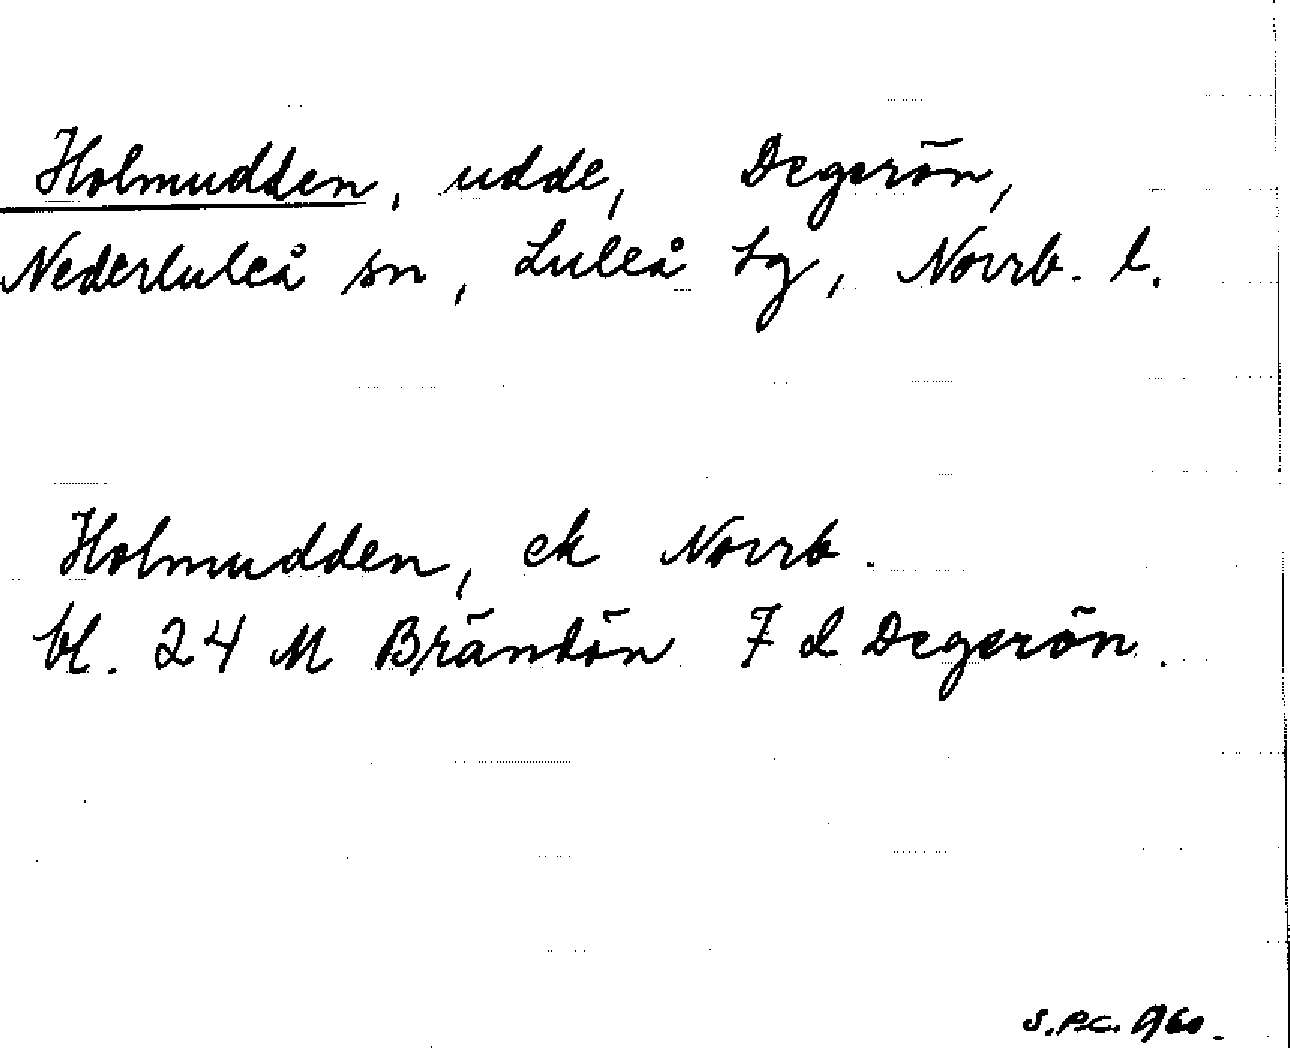 Holmudden, udde, Degerön,
Nederluleå sn, Luleå tg, Norrb. l.
Holmudden, ek Norrb.
bl. 24 M Brändön 7 d Degerön.
S.P.C. 1960.